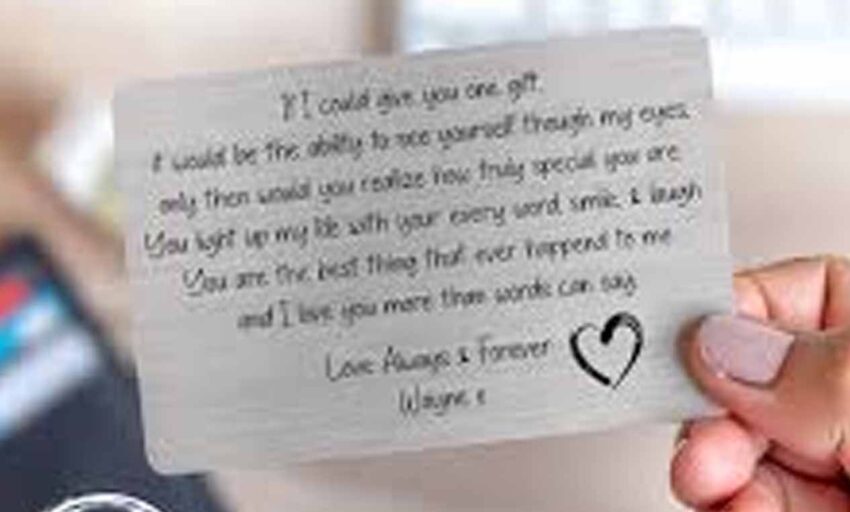 If I could give you one gift,
it would be the ability to see yourself though my eyes,
only then would you realize how truly special you are
You light up my life with your every word, smile, & laugh
You are the best thing that ever happend to me
and I love you more than words can say
Love Always & Forever
Wayne